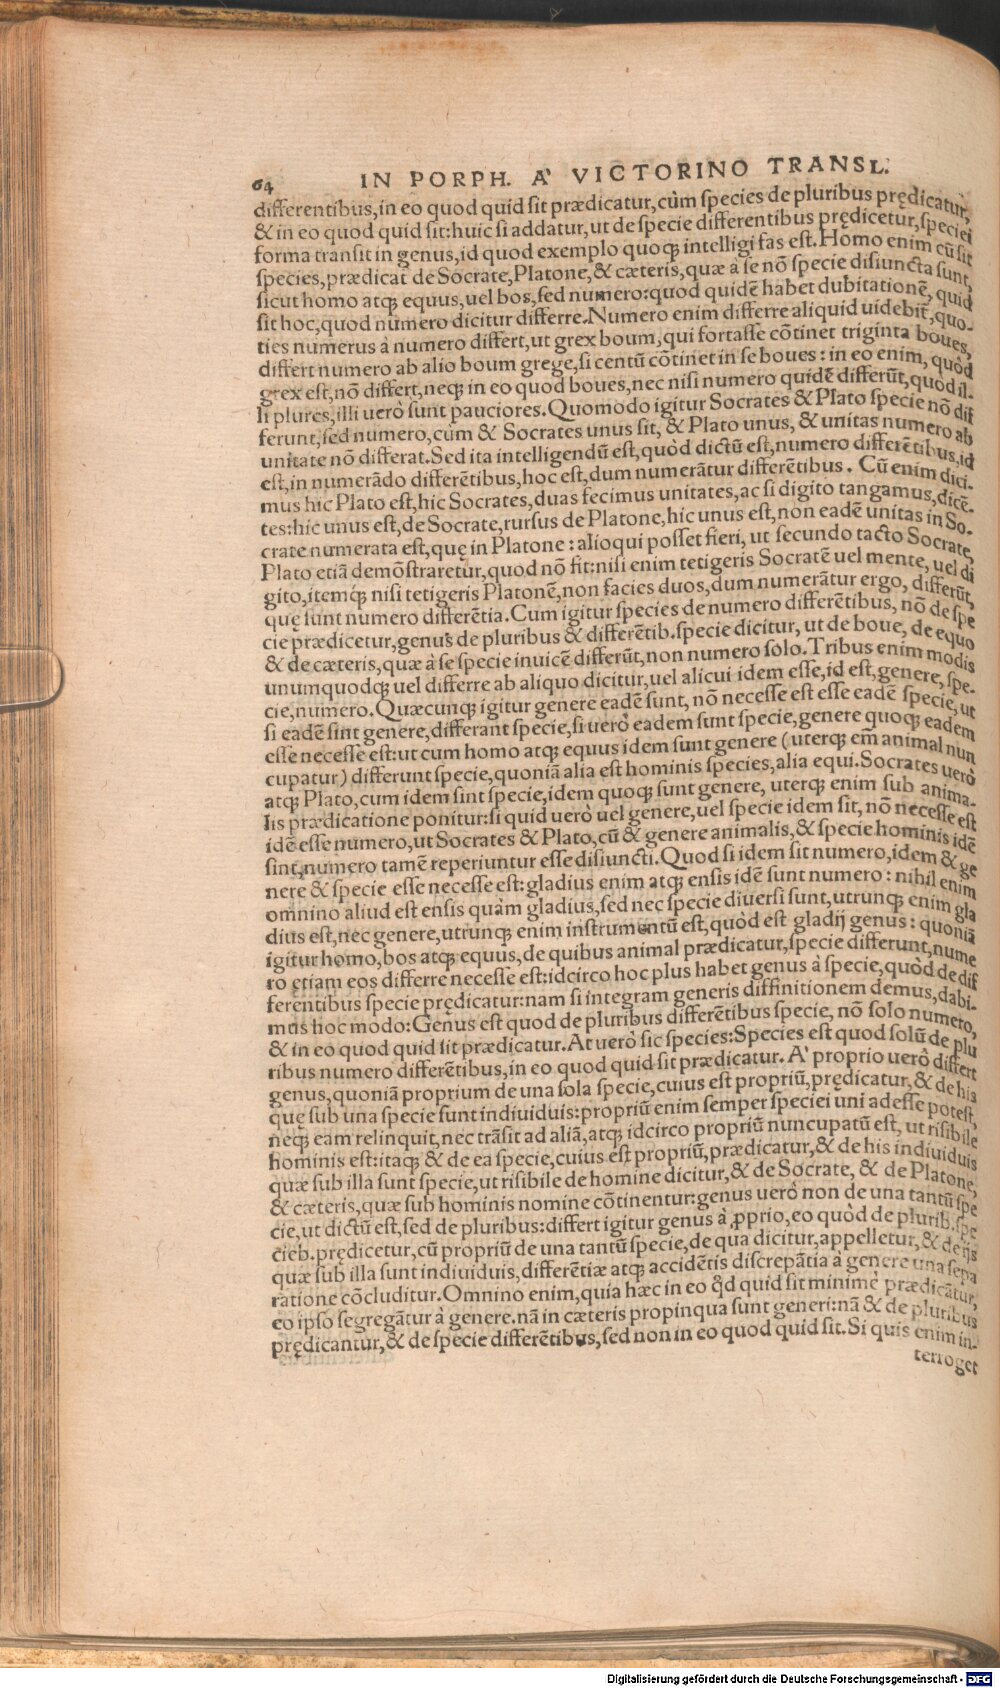 64 IN PORPH. A' VICTORINO TRANSL.
differentibus,in eo quod quid sit prædicatur,cùm species de pluribus prędicatur,
& in eo quod quid sit:huic si addatur,ut de specie differentibus prędicetur,speciei
forma transit in genus,id quod exemplo quoq; intelligi fas est. Homo enim cũ sit
species,prædicat̃ de Socrate,Platone,& cæteris,quæ à se nõ specie disiuncta sunt,
sicut homo atq; equus,uel bos,sed numero:quod quidẽ habet dubitationẽ, quid
sit hoc,quod numero dicitur differre.Numero enim differre aliquid uidebit̃,quo-
ties numerus à numero differt,ut grex boum,qui fortasse cõtinet triginta boues,
differt numero ab alio boum grege,si centũ cõtinet in se boues: in eo enim, quòd
grex est,nõ differt,neq; in eo quod boues,nec nisi numero quidẽ differũt,quod il-
li plures,illi uerò sunt pauciores.Quomodo igitur Socrates & Plato specie nõ dif
ferunt,sed numero,cùm & Socrates unus sit, & Plato unus, & unitas numero ab
unitate nõ differat.Sed ita intelligendũ est,quòd dictũ est,numero differẽtibus,id
est,in numerãdo differẽtibus,hoc est,dum numerãtur differẽtibus. Cũ enim dici-
mus hic Plato est,hic Socrates,duas fecimus unitates,ac si digito tangamus,dicẽ-
tes:hic unus est,de Socrate,rursus de Platone,hic unus est,non eadẽ unitas in So-
crate numerata est,quę in Platone: alioqui posset fieri, ut secundo tacto Socrate,
Plato etiã demõstraretur,quod nõ fit:nisi enim tetigeris Socratẽ uel mente, uel di
gito,itemq́; nisi tetigeris Platonẽ,non facies duos,dum numerãtur ergo, differũt,
quę sunt numero differẽtia.Cum igitur species de numero differẽtibus, nõ de spe
cie prædicetur,genus de pluribus & differẽtib.specie dicitur, ut de boue, de equo
& de cæteris,quæ à se specie inuicẽ differũt,non numero solo.Tribus enim modis
unumquodq; uel differre ab aliquo dicitur,uel alicui idem esse,id est,genere, spe-
cie,numero.Quæcunq; igitur genere eadẽ sunt, nõ necesse est esse eadẽ specie,ut
si eadẽ sint genere,differant specie,si uerò eadem sunt specie,genere quoq; eadem
esse necesse est:ut cum homo atq; equus idem sunt genere (uterq; em̃ animal nun
cupatur) differunt specie,quoniã alia est hominis species,alia equi.Socrates uerò
atq; Plato,cum idem sint specie,idem quoq; sunt genere, uterq; enim sub anima-
lis prædicatione ponitur:si quid uerò uel genere,uel specie idem sit, nõ necesse est
idẽ esse numero,ut Socrates & Plato,cũ & genere animalis,& specie hominis idẽ
sint,numero tamẽ reperiuntur esse disiuncti.Quod si idem sit numero,idem & ge
nere & specie esse necesse est:gladius enim atq; ensis idẽ sunt numero: nihil enim
omnino aliud est ensis quàm gladius,sed nec specie diuersi sunt,utrunq; enim gla
dius est,nec genere,utrunq; enim instrumentũ est,quòd est gladij genus: quoniã
igitur homo,bos atq; equus,de quibus animal prædicatur,specie differunt,nume
ro etiam eos differre necesse est:idcirco hoc plus habet genus à specie,quòd de dif
ferentibus specie prędicatur:nam si integram generis diffinitionem demus,dabi-
mus hoc modo:Genus est quod de pluribus differẽtibus specie, nõ solo numero,
& in eo quod quid sit prædicatur.At uerò sic species:Species est quod solũ de plu
ribus numero differẽtibus,in eo quod quid sit prædicatur. A' proprio uerò differt
genus,quoniã proprium de una sola specie,cuius est propriũ,prędicatur,& de his
quę sub una specie sunt indiuiduis:propriũ enim semper speciei uni adesse potest,
neq; eam relinquit,nec trãsit ad aliã,atq; idcirco propriũ nuncupatũ est, ut risibile
hominis est:itaq; & de ea specie,cuius est propriũ,prædicatur,& de his indiuiduis
quæ sub illa sunt specie,ut risibile de homine dicitur,& de Socrate, & de Platone,
& cæteris,quæ sub hominis nomine cõtinentur:genus uerò non de una tantũ spe
cie,ut dictũ est,sed de pluribus:differt igitur genus à ꝓprio,eo quòd de plurib.spe
cieb.prędicetur,cũ propriũ de una tantũ specie,de qua dicitur,appelletur,& de ijs
quæ sub illa sunt indiuiduis,differẽtiæ atq; accidẽtis discrepãtia à genere una sepa
ratione cõcluditur.Omnino enim,quia hæc in eo q̃d quid sit minimè prædicãtur,
eo ipso segregãtur à genere.nã in cæteris propinqua sunt generi:nã & de pluribus
prędicantur,& de specie differẽtibus,sed non in eo quod quid sit.Si quis enim in-
terroget
Digitalisierung gefördert durch die Deutsche Forschungsgemeinschaft - DFG